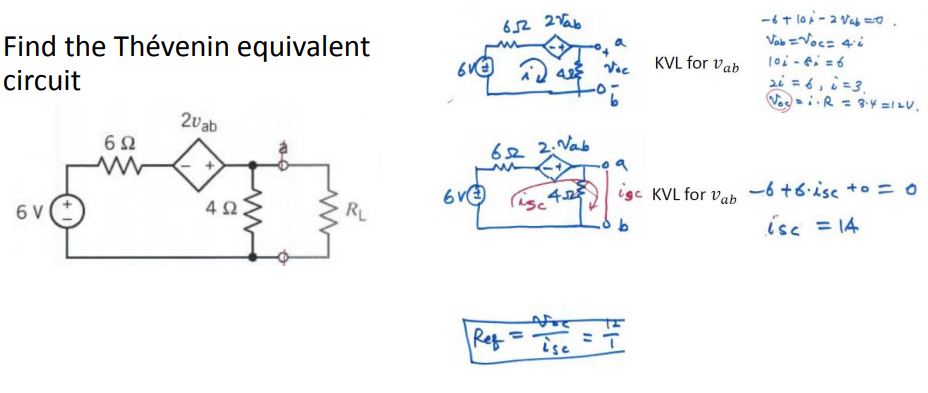 Find the Thévenin equivalent
circuit
2vab
6 Ω
- +
a
6 V
+
-
4 Ω
RL
6Ω 2Vab
- +
a
+
6V
i
4Ω
Voc
-
b
KVL for vab
-6 + 10i - 2 Vab = 0 .
Vab = Voc = 4·i
10i - 8i = 6
2i = 6 , i = 3
Voc = i·R = 3·4 = 12V.
6Ω 2.Vab
- +
a
6V
isc
4Ω
isc
b
KVL for vab
-6 + 6·isc + 0 = 0
isc = 1A
Ref = Voc / isc = 12 / 1